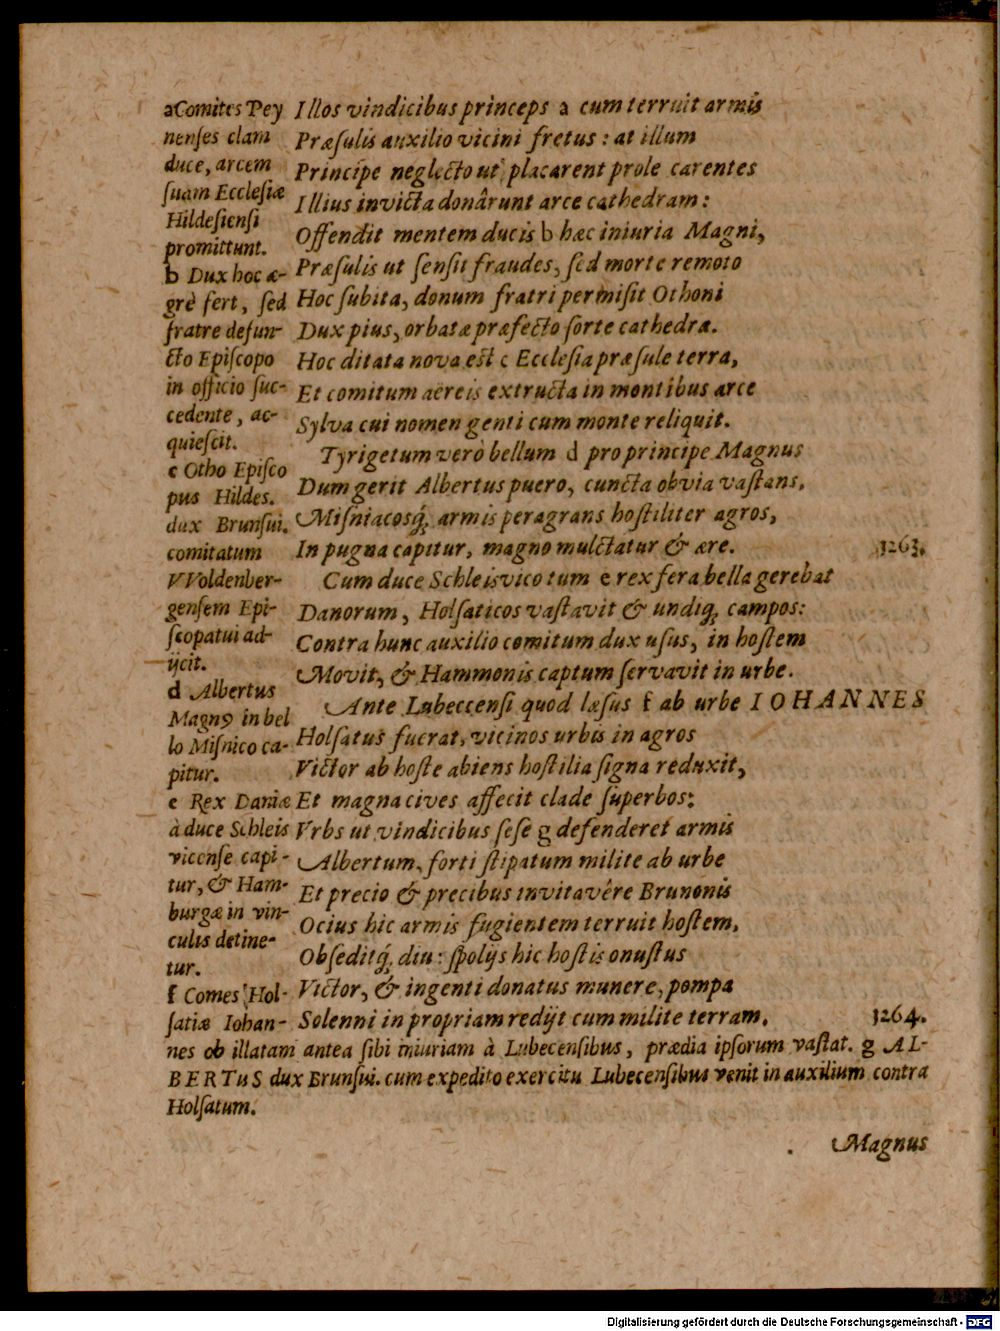 Illos vindicibus princeps a cum terruit armis
Præſulis auxilio vicini fretus : at illum
Principe neglecto ut placarent prole carentes
Illius invicta donârunt arce cathedram :
Offendit mentem ducis b hæc iniuria Magni,
Præſulis ut ſenſit fraudes, ſed morte remoto
Hoc ſubita, donum fratri permiſit Othoni
Dux pius, orbatæ præfecto ſorte cathedræ.
Hoc ditata nova est c Eccleſia præſule terra,
Et comitum aëreis extructa in montibus arce
Sylva cui nomen genti cum monte reliquit.
Tyrigetum verò bellum d pro principe Magnus
Dum gerit Albertus puero, cuncta obvia vaſtans,
Miſniacosq́; armis peragrans hoſtiliter agros,
In pugna capitur, magno mulctatur & ære. 1263.
Cum duce Schleisvico tum e rex fera bella gerebat
Danorum, Holſaticos vaſtavit & undiq; campos:
Contra hunc auxilio comitum dux uſus, in hoſtem
Movit, & Hammonis captum ſervavit in urbe.
Ante Lubeccenſi quod læſus f ab urbe IOHANNES
Holſatus fuerat, vicinos urbis in agros
Victor ab hoſte abiens hoſtilia ſigna reduxit,
Et magna cives affecit clade ſuperbos:
Vrbs ut vindicibus ſeſe g defenderet armis
Albertum, forti ſtipatum milite ab urbe
Et precio & precibus invitavêre Brunonis
Ocius hic armis fugientem terruit hoſtem,
Obſeditq́; diu : ſpolijs hic hoſtis onuſtus
Victor, & ingenti donatus munere, pompa
Solenni in propriam redijt cum milite terram. 1264.
a Comites Pey
nenſes clam
duce, arcem
ſuam Eccleſiæ
Hildeſienſi
promittunt.
b Dux hoc æ-
grè fert, ſed
fratre defun-
cto Epiſcopo
in officio ſuc-
cedente, ac-
quieſcit.
c Otho Epiſco
pus Hildes.
dux Brunſui.
comitatum
VVoldenber-
genſem Epi-
ſcopatui ad-
ijcit.
d Albertus
Magnꝰ in bel
lo Miſnico ca-
pitur.
e Rex Daniæ
à duce Schleis
vicenſe capi-
tur, & Ham-
burgæ in vin-
culis detine-
tur.
f Comes Hol-
ſatiæ Iohan-
nes ob illatam antea ſibi iniuriam à Lubecenſibus, prædia ipſorum vaſtat. g AL-
BERTuS dux Brunſui. cum expedito exercitu Lubecenſibus venit in auxilium contra
Holſatum.
Magnus
Digitalisierung gefördert durch die Deutsche Forschungsgemeinschaft - DFG